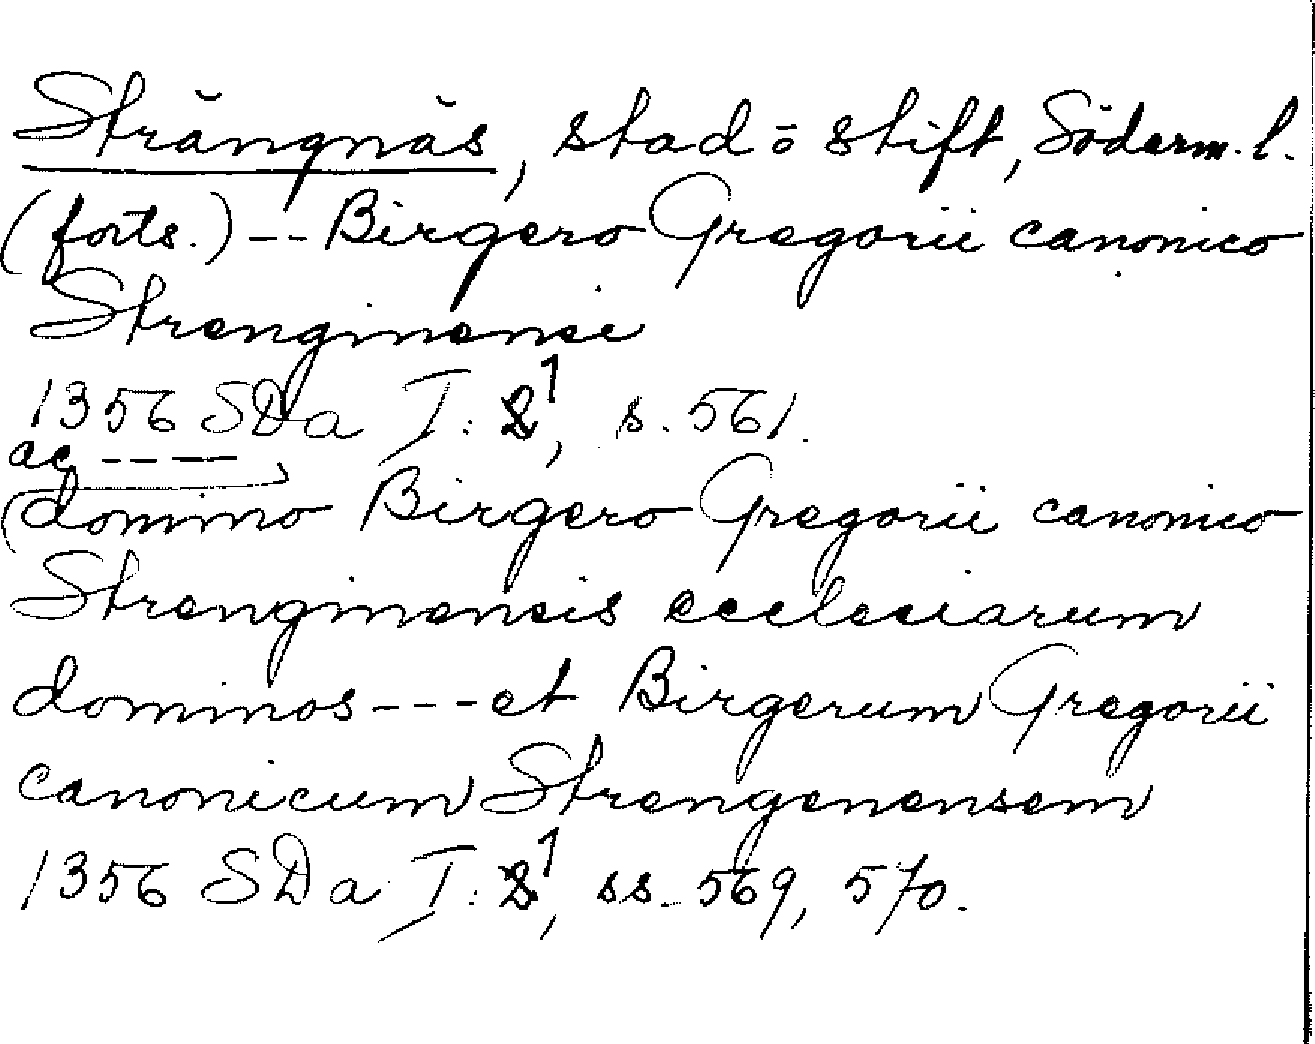 Strängnäs, stad o stift, Söderm. l.
(forts.) -- Birgero Gregorii canonico
Strenginensi
1356 SDa I: 1, s. 561.
ac ----
domino Birgero Gregorii canonico
Strenginensis ecclesiarum
dominos --- et Birgerum Gregorii
canonicum Strengenensem
1356 SDa I: 1, ss. 569, 570.